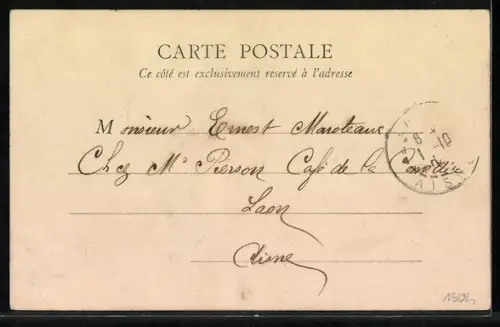 CARTE POSTALE
Ce côté est exclusivement reservé à l'adresse
Monsieur Ernest Maroteaux
Chez Mr Pierson Café de la Comédie
Laon
Aisne